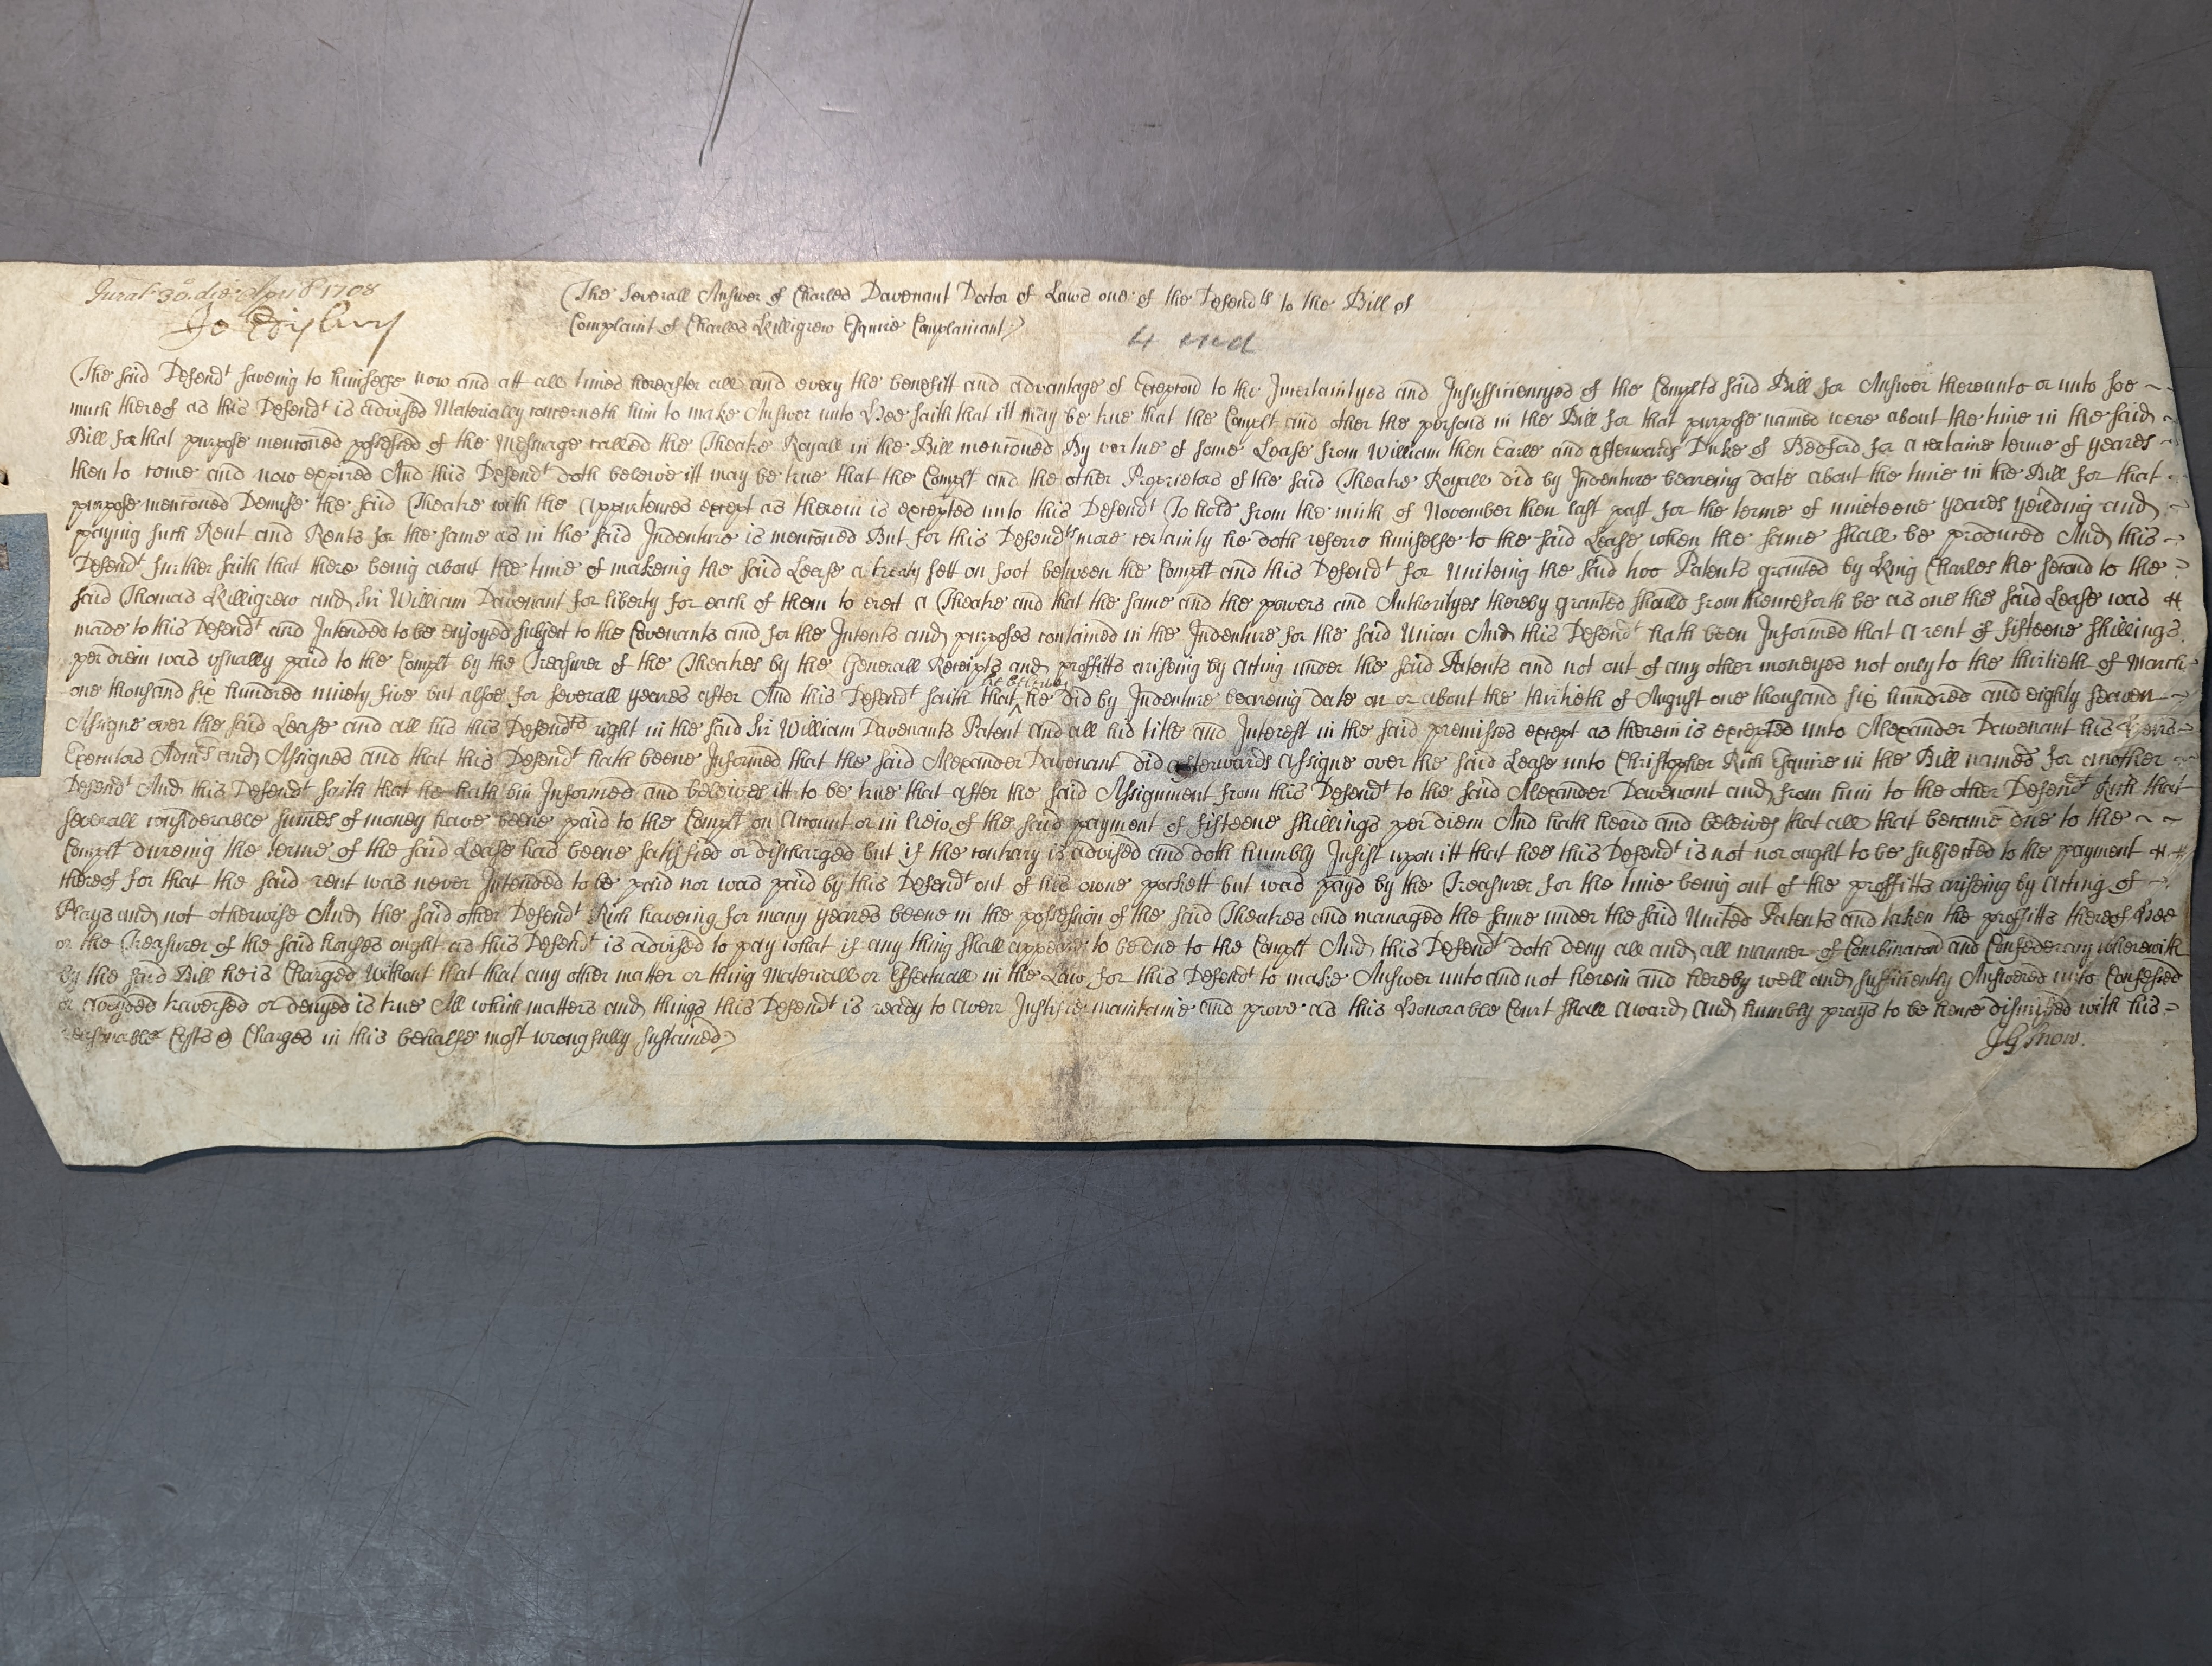 Jurat 30 die Aprilis 1708
The Severall Answer of Charles Davenant Doctor of Laws one of the Defendts to the Bill of
Complaint of Charles Killigrew Esquire Complainant
4
The said Defendt saveing to himselfe now and att all times hereafter all and every the benefitt and advantage of Excepcon to the Incertaintyes and Insufficiencyes of the Complts said Bill for Answer thereunto or unto soe
much thereof as this Defendt is advised Materially concerneth him to make Answer unto Hee saith that itt may be true that the Complt and other the persons in the Bill for that purpose named were about the time in the said
Bill for that purpose menconed possessed of the Messuage called the Theatre Royall in the Bill menconed By vertue of some Lease from William then Earle and afterwards Duke of Bedford for a certaine terme of yeares
then to come and now expired And this Defendt doth beleive itt may be true that the Complt and the other Proprietors of the said Theatre Royall did by Indenture beareing date about the time in the Bill for that
purpose menconed Demise the said Theatre with the Appurtences except as therein is excepted unto this Defendt To hold from the ninth of November then last past for the terme of nineteene yeares yeilding and
paying such Rent and Rents for the same as in the said Indenture is menconed But for this Defendts more certainty he doth referre himselfe to the said Lease when the same shall be produced And this
Defendt further saith that there being about the time of makeing the said Lease a treaty sett on foot between the Complt and this Defendt for Uniteing the said two Patents granted by King Charles the second to the
said Thomas Killigrew and Sir William Davenant for liberty for each of them to erect a Theatre and that the same and the powers and Authorityes thereby granted should from thenceforth be as one the said Lease was
made to this Defendt and Intended to be enjoyed subject to the Covenants and for the Intents and purposes contained in the Indenture for the said Union And this Defendt hath been Informed that a rent of fifteene shillings
per diem was usually paid to the Complt by the Treasurer of the Theatres by the Generall Receipts and proffitts ariseing by Acting under the said Patents and not out of any other moneyes not only to the thirtieth of March
one thousand six hundred ninety five but alsoe for severall yeares after And this Defendt saith that he beleives he did by Indenture beareing date on or about the thirtieth of August one thousand six hundred and eighty seaven
Assigne over the said Lease and all his this Defendts right in the said Sir William Davenants Patent and all his title and Interest in the said premisses except as therein is excepted unto Alexander Davenant his Heirs
Executors Admrs and Assignes and that this Defendt hath beene Informed that the said Alexander Davenant did afterwards Assigne over the said Lease unto Christopher Rich Esquire in the Bill named for another
Defendt And this Defendt saith that he hath bin Informed and beleives itt to be true that after the said Assignment from this Defendt to the said Alexander Davenant and from him to the other Defendt Rich that
severall considerable summes of money have beene paid to the Complt on Account or in liew of the said payment of fifteene shillings per diem And hath heard and beleives that all that became due to the
Complt dureing the terme of the said Lease had beene satisfied or discharged but if the contrary is advised and doth humbly Insist upon itt that hee this Defendt is not nor ought to be subjected to the payment
thereof for that the said rent was never Intended to be paid nor was paid by this Defendt out of his owne pockett but was payd by the Treasurer for the time being out of the proffitts ariseing by Acting of
Plays and not otherwise And the said other Defendt Rich haveing for many yeares beene in the possession of the said Theatres and managed the same under the said United Patents and taken the proffitts thereof Hee
or the Treasurer of the said houses ought as this Defendt is advised to pay what if any thing shall appeare to be due to the Complt And this Defendt doth deny all and all manner of Combinacon and Confederacy wherewith
by the said Bill he is Charged Without that that any other matter or thing Materiall or Effectuall in the Law for this Defendt to make Answer unto and not herein and hereby well and sufficiently Answered unto Confessed
or avoyded traversed or denyed is true All which matters and things this Defendt is ready to averr Justifie maintaine and prove as this Honorable Court shall award And humbly prays to be hence dismissed with his
reasonable Costs & Charges in this behalfe most wrongfully sustained
Snow